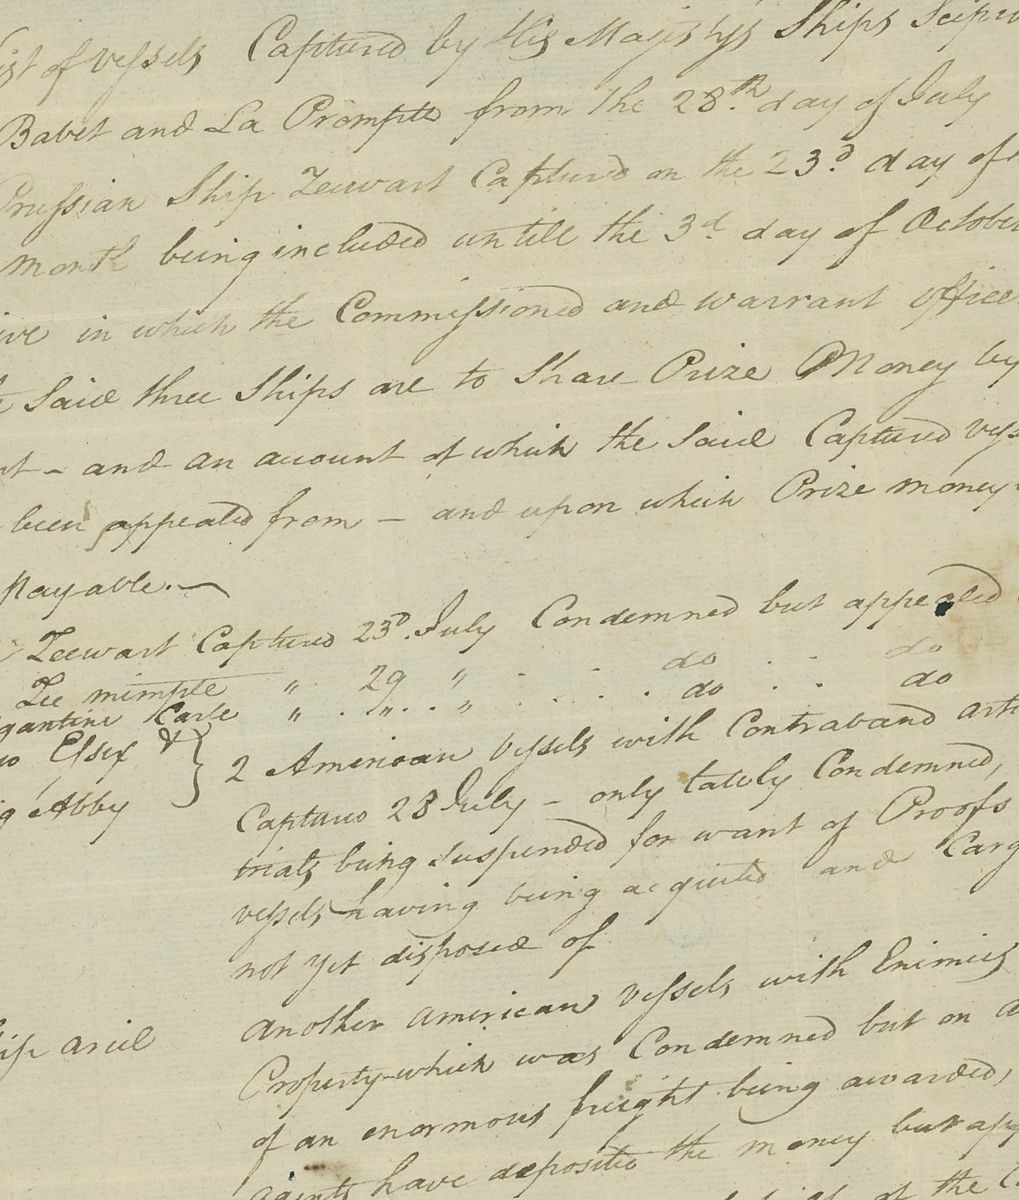 ist of vessels Captured by His Majestys Ships Scipio
Babet and La Prompte from the 28th day of July
Prussian Ship Zeewart Captured on the 23d day of
month being included untill the 3d day of October
ive in which the Commissioned and warrant office
Said three Ships are to Share Prize Money by
nt – and an account of which the Said Captured vess
been appealed from – and upon which Prize money
payable. —
Zeewart Captured 23d. July Condemned but appealed
Zee mimple " 29 " . . . do . . do
gantine Carle " . " . . " . . . . do . . do
Essex &
ig Abby
2 American Vessels with Contraband arti
Captured 28 July – only lately Condemned,
trials being suspended for want of Proofs
vessels having being acquited and Carg
not yet disposed of
hip ariel
another american vessels with Enimies
Property which was Condemned but on a
of an enormous freight being awarded,
agents have deposited the money but app
of the